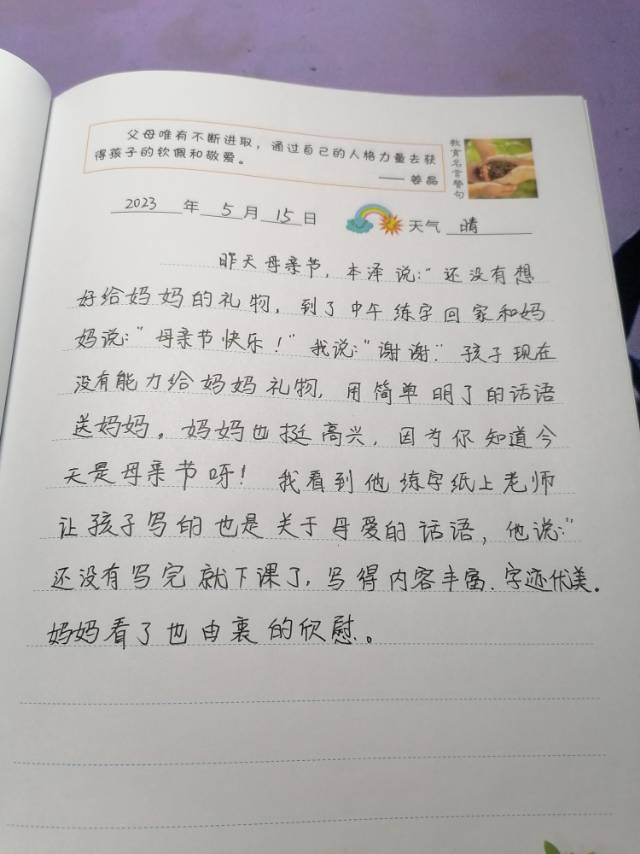 父母唯有不断进取，通过自己的人格力量去获
得孩子的钦佩和敬爱。
—— 姜晶
教育名言警句
2023 年 5 月 15 日
天气 晴
昨天母亲节，本泽说："还没有想
好给妈妈的礼物，到了中午练字回家和妈
妈说："母亲节快乐！"我说："谢谢"。孩子现在
没有能力给妈妈礼物，用简单明了的话语
送妈妈。妈妈也挺高兴，因为你知道今
天是母亲节呀！我看到他练字纸上老师
让孩子写的也是关于母爱的话语，他说："
还没有写完就下课了，写得内容丰富、字迹优美。
妈妈看了也由衷的欣慰。